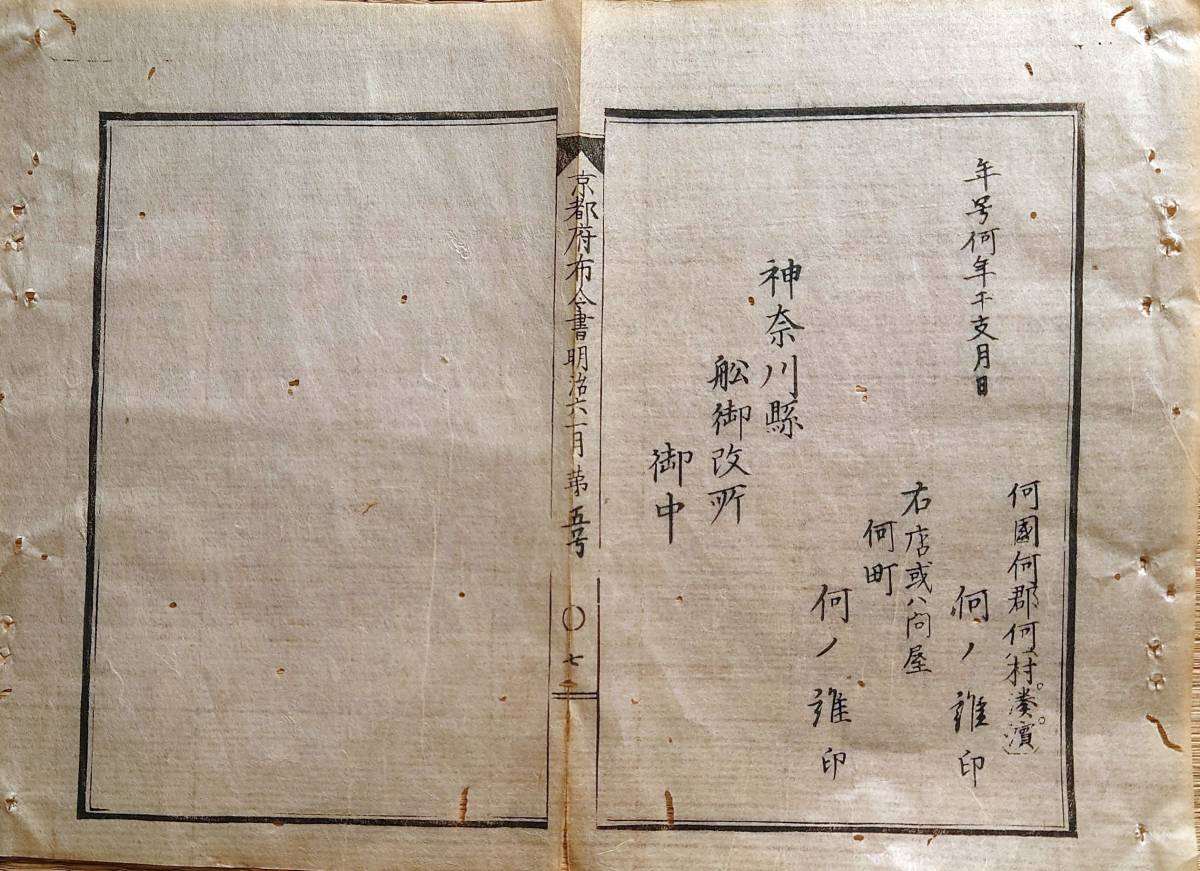 年号何年干支月日
何國何郡何(村。湊。濱)
何ノ誰印
右店或ハ問屋
何町
何ノ誰印
神奈川縣
舩御改所
御中
京都府布令書明治六一月第五号 〇七